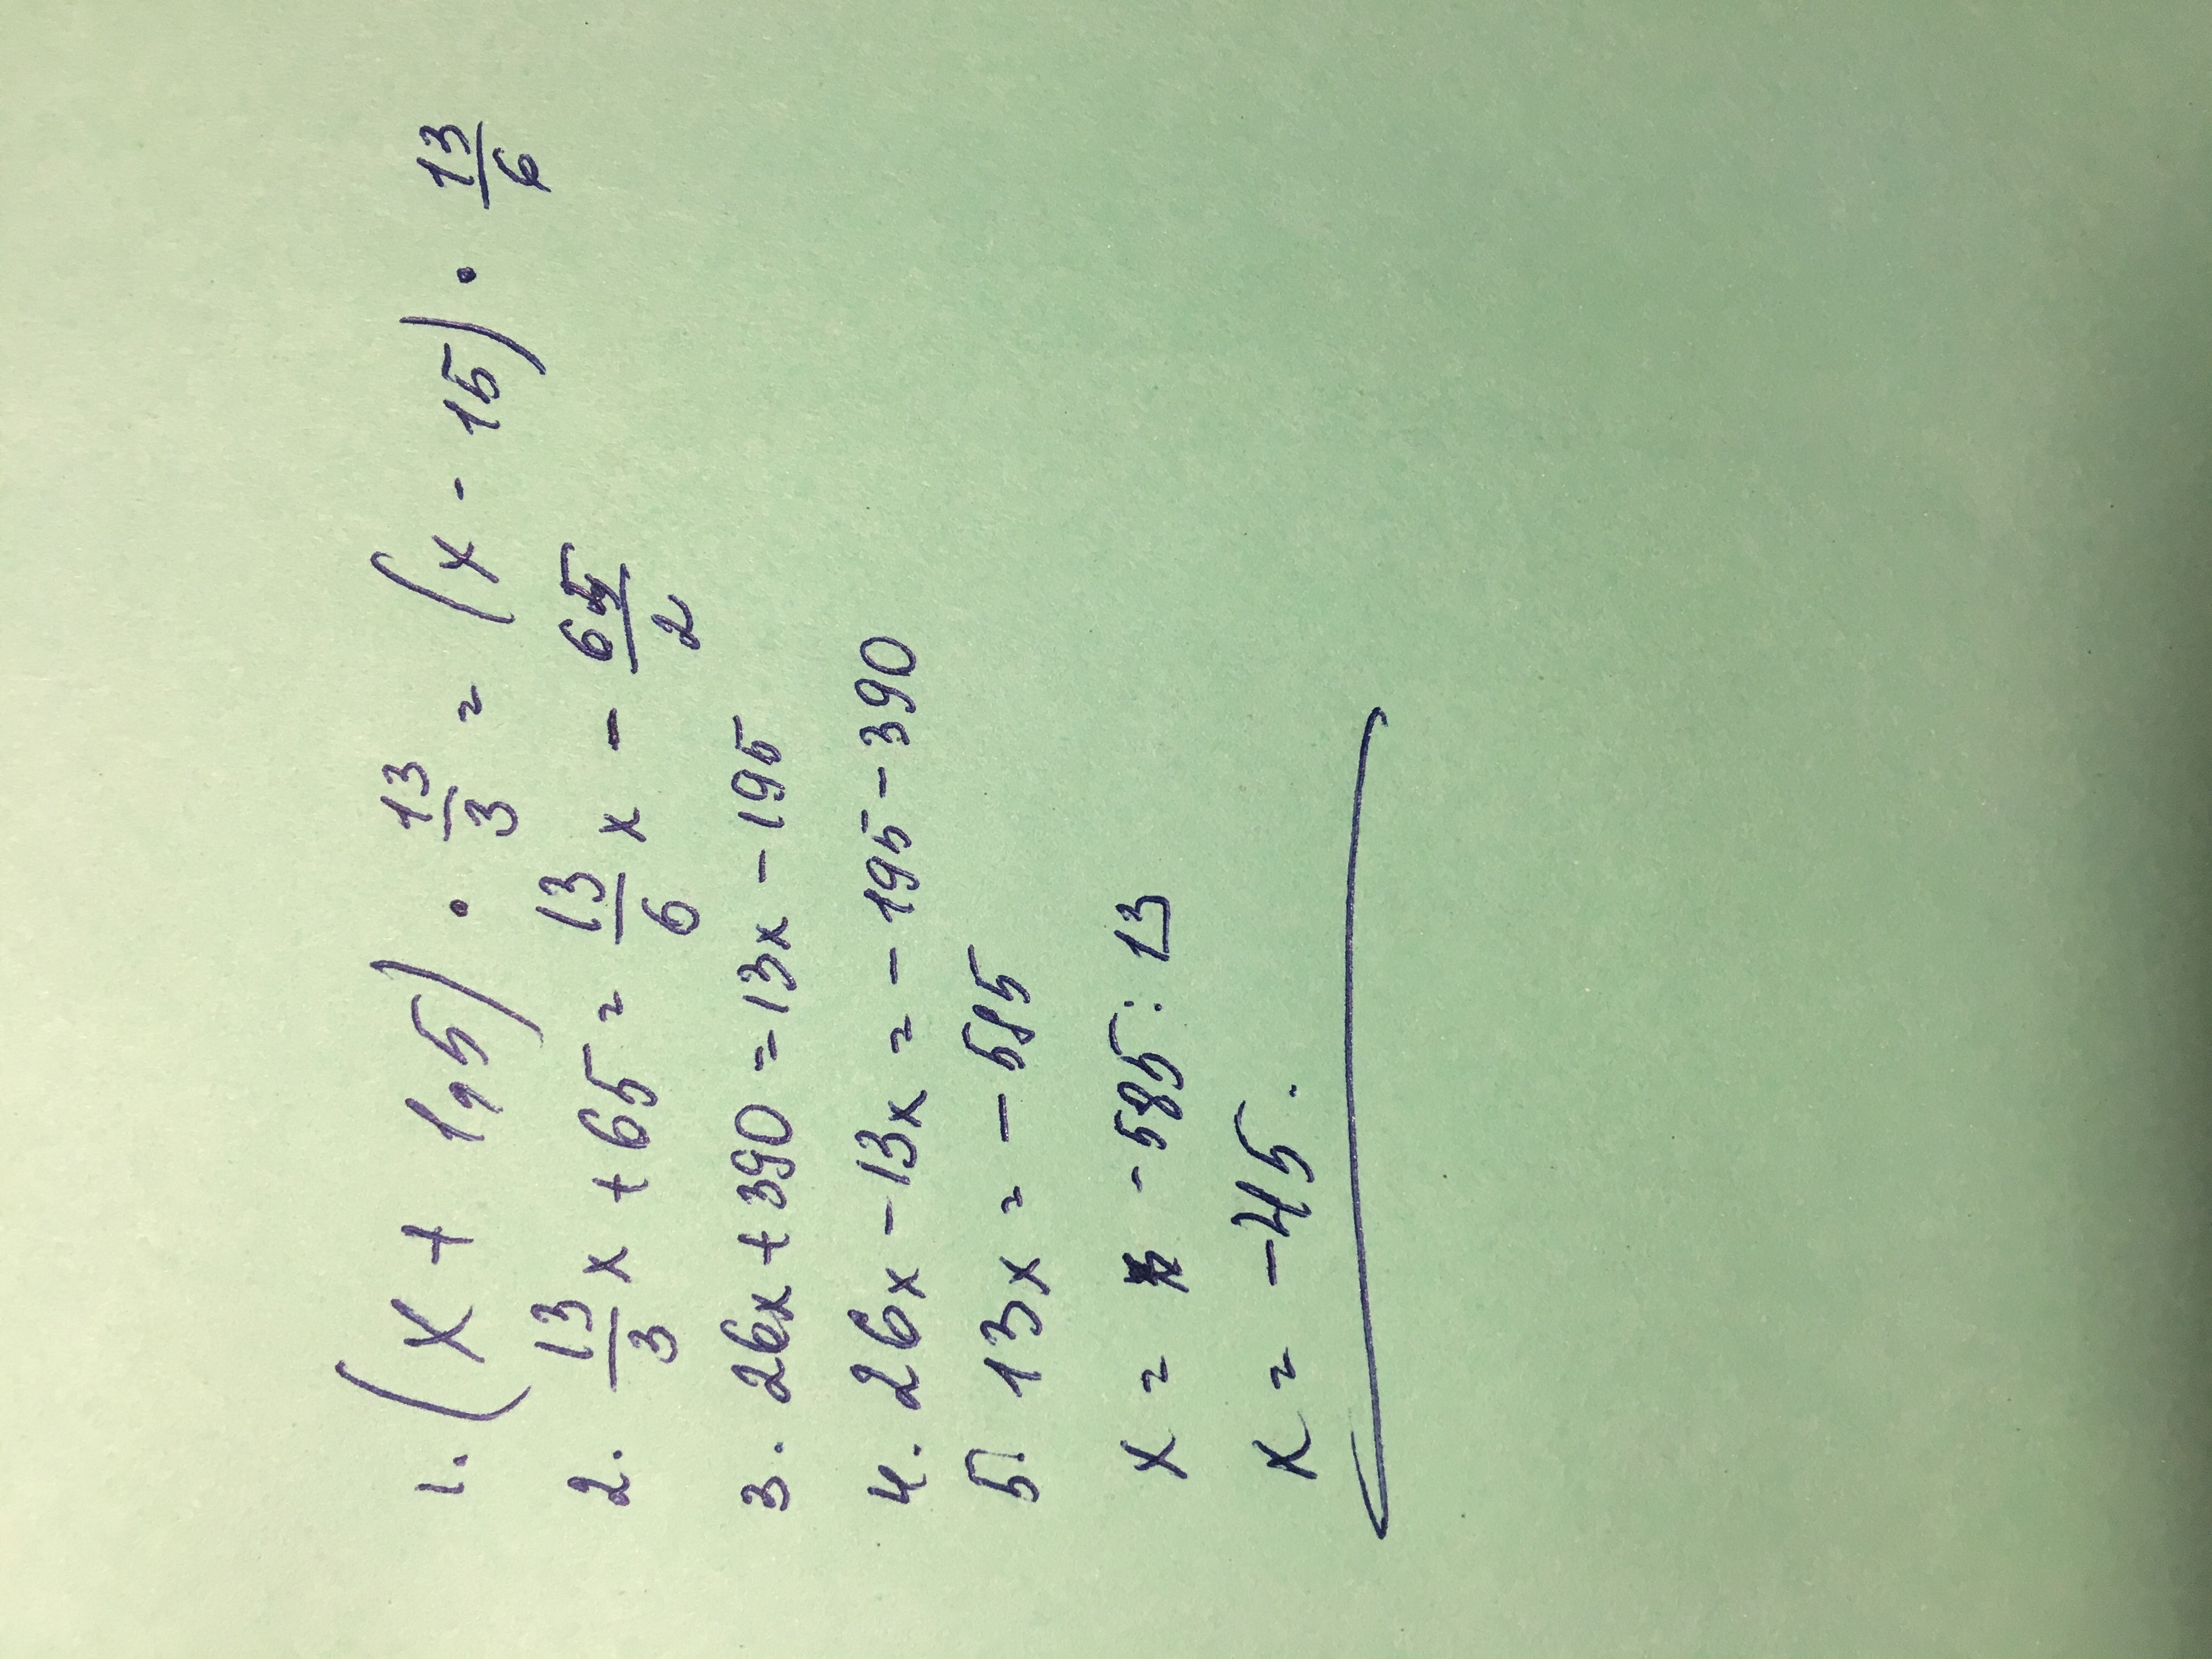 1. (x + 1,5) · 13/3 = (x - 15) · 13/6
2. 13/3 x + 65 = 13/6 x - 65/2
3. 26x + 390 = 13x - 195
4. 26x - 13x = - 195 - 390
5. 13x = - 585
x = - 585 : 13
x = - 45.